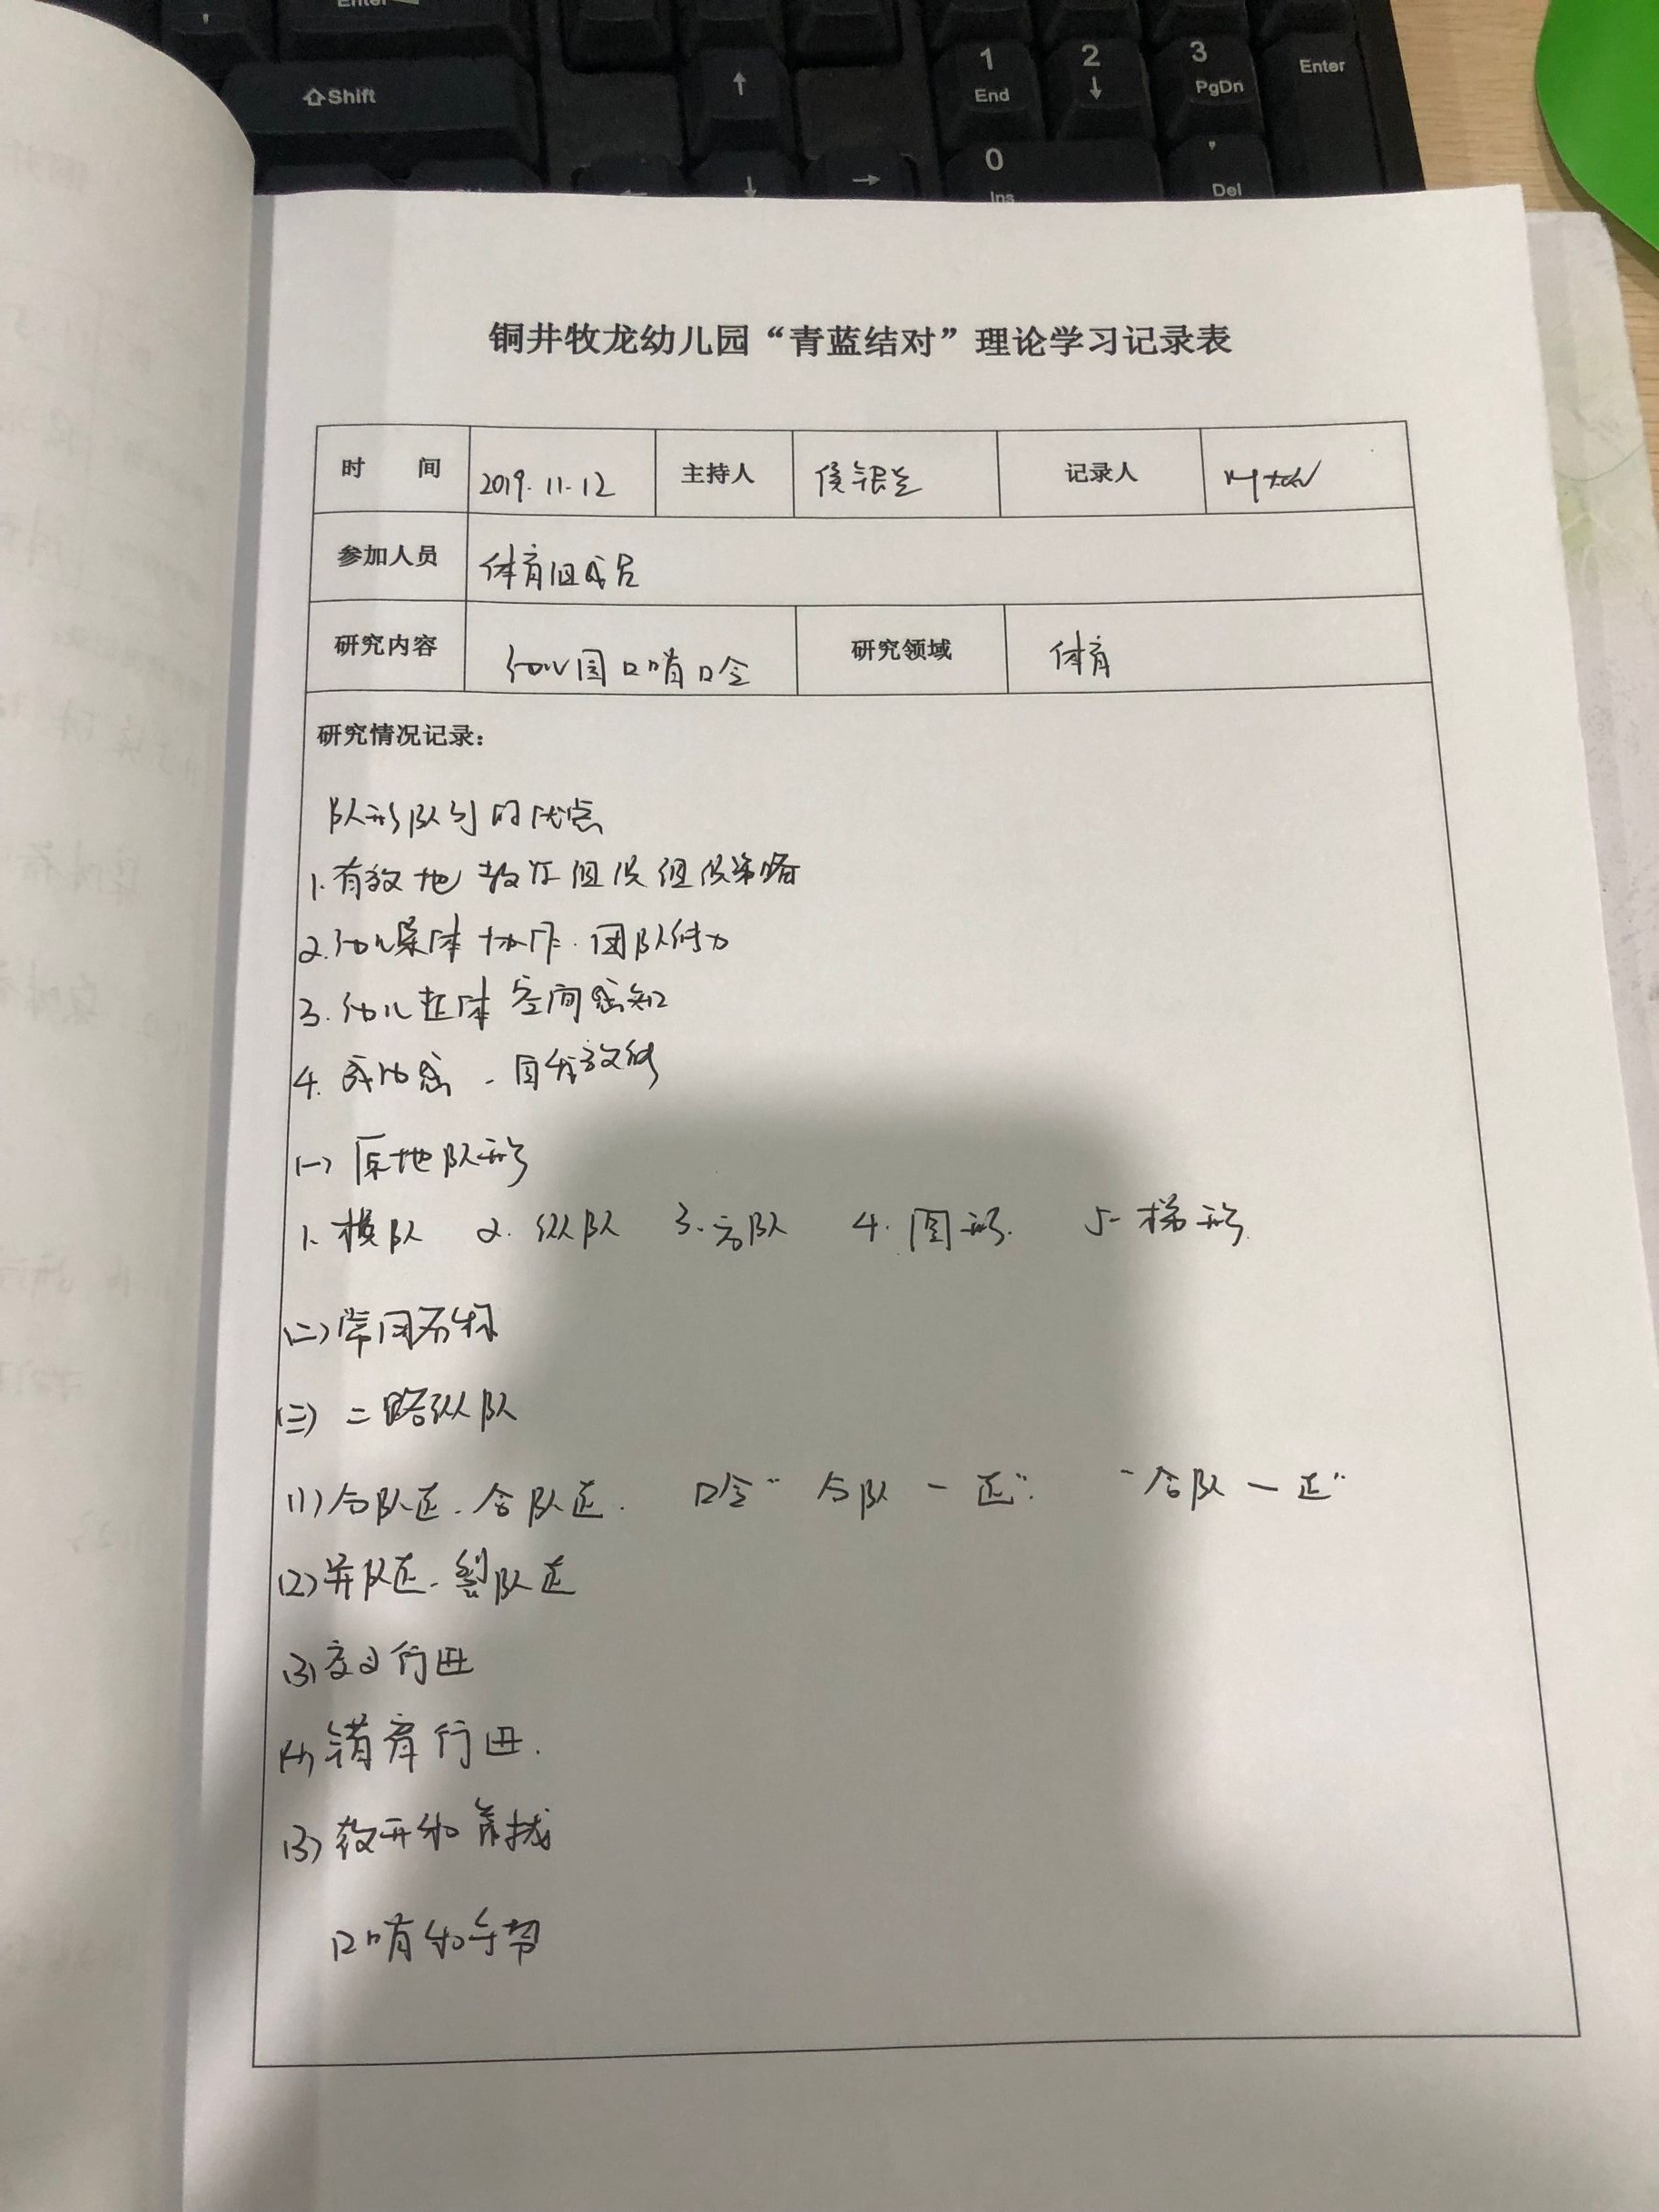 Enter
Shift
↑
1 End
2 ↓
3 PgDn
Enter
← ↓ →
0 Ins
. Del
铜井牧龙幼儿园“青蓝结对”理论学习记录表
时 间 2019.11.12 主持人 侯银兰 记录人
参加人员 体育组成员
研究内容 幼儿园口哨口令 研究领域 体育
研究情况记录：
队形队列的优点
1.有效地 组织组织策略
2.幼儿集体协作.团队
3.幼儿 空间感知
4.
(一)原地队形
1.横队 2.纵队 3.方队 4.圆形. 5.梯形.
(二)常用
(三)二路纵队
(1)分队走.合队走. 口令“分队一走”. “合队一走”
(2)并队走.裂队走
(3)交叉行进
(4)错肩行进.
(3)散开和靠拢
口哨和